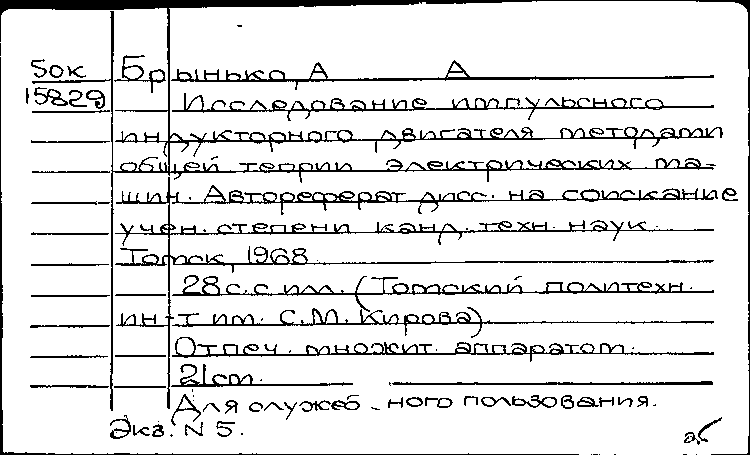 50к Брынько, А А
15829 Исследование импульсного
индукторного двигателя методами
общей теории электрических ма-
шин. Автореферат дисс. на соискание
учен. степени канд. техн. наук.
Томск, 1968
28 с. с илл. (Томский политехн.
ин-т им. С.М. Кирова).
Отпеч. множит. аппаратом.
21 cm.
Для служеб - ного пользования.
Экз. N 5.